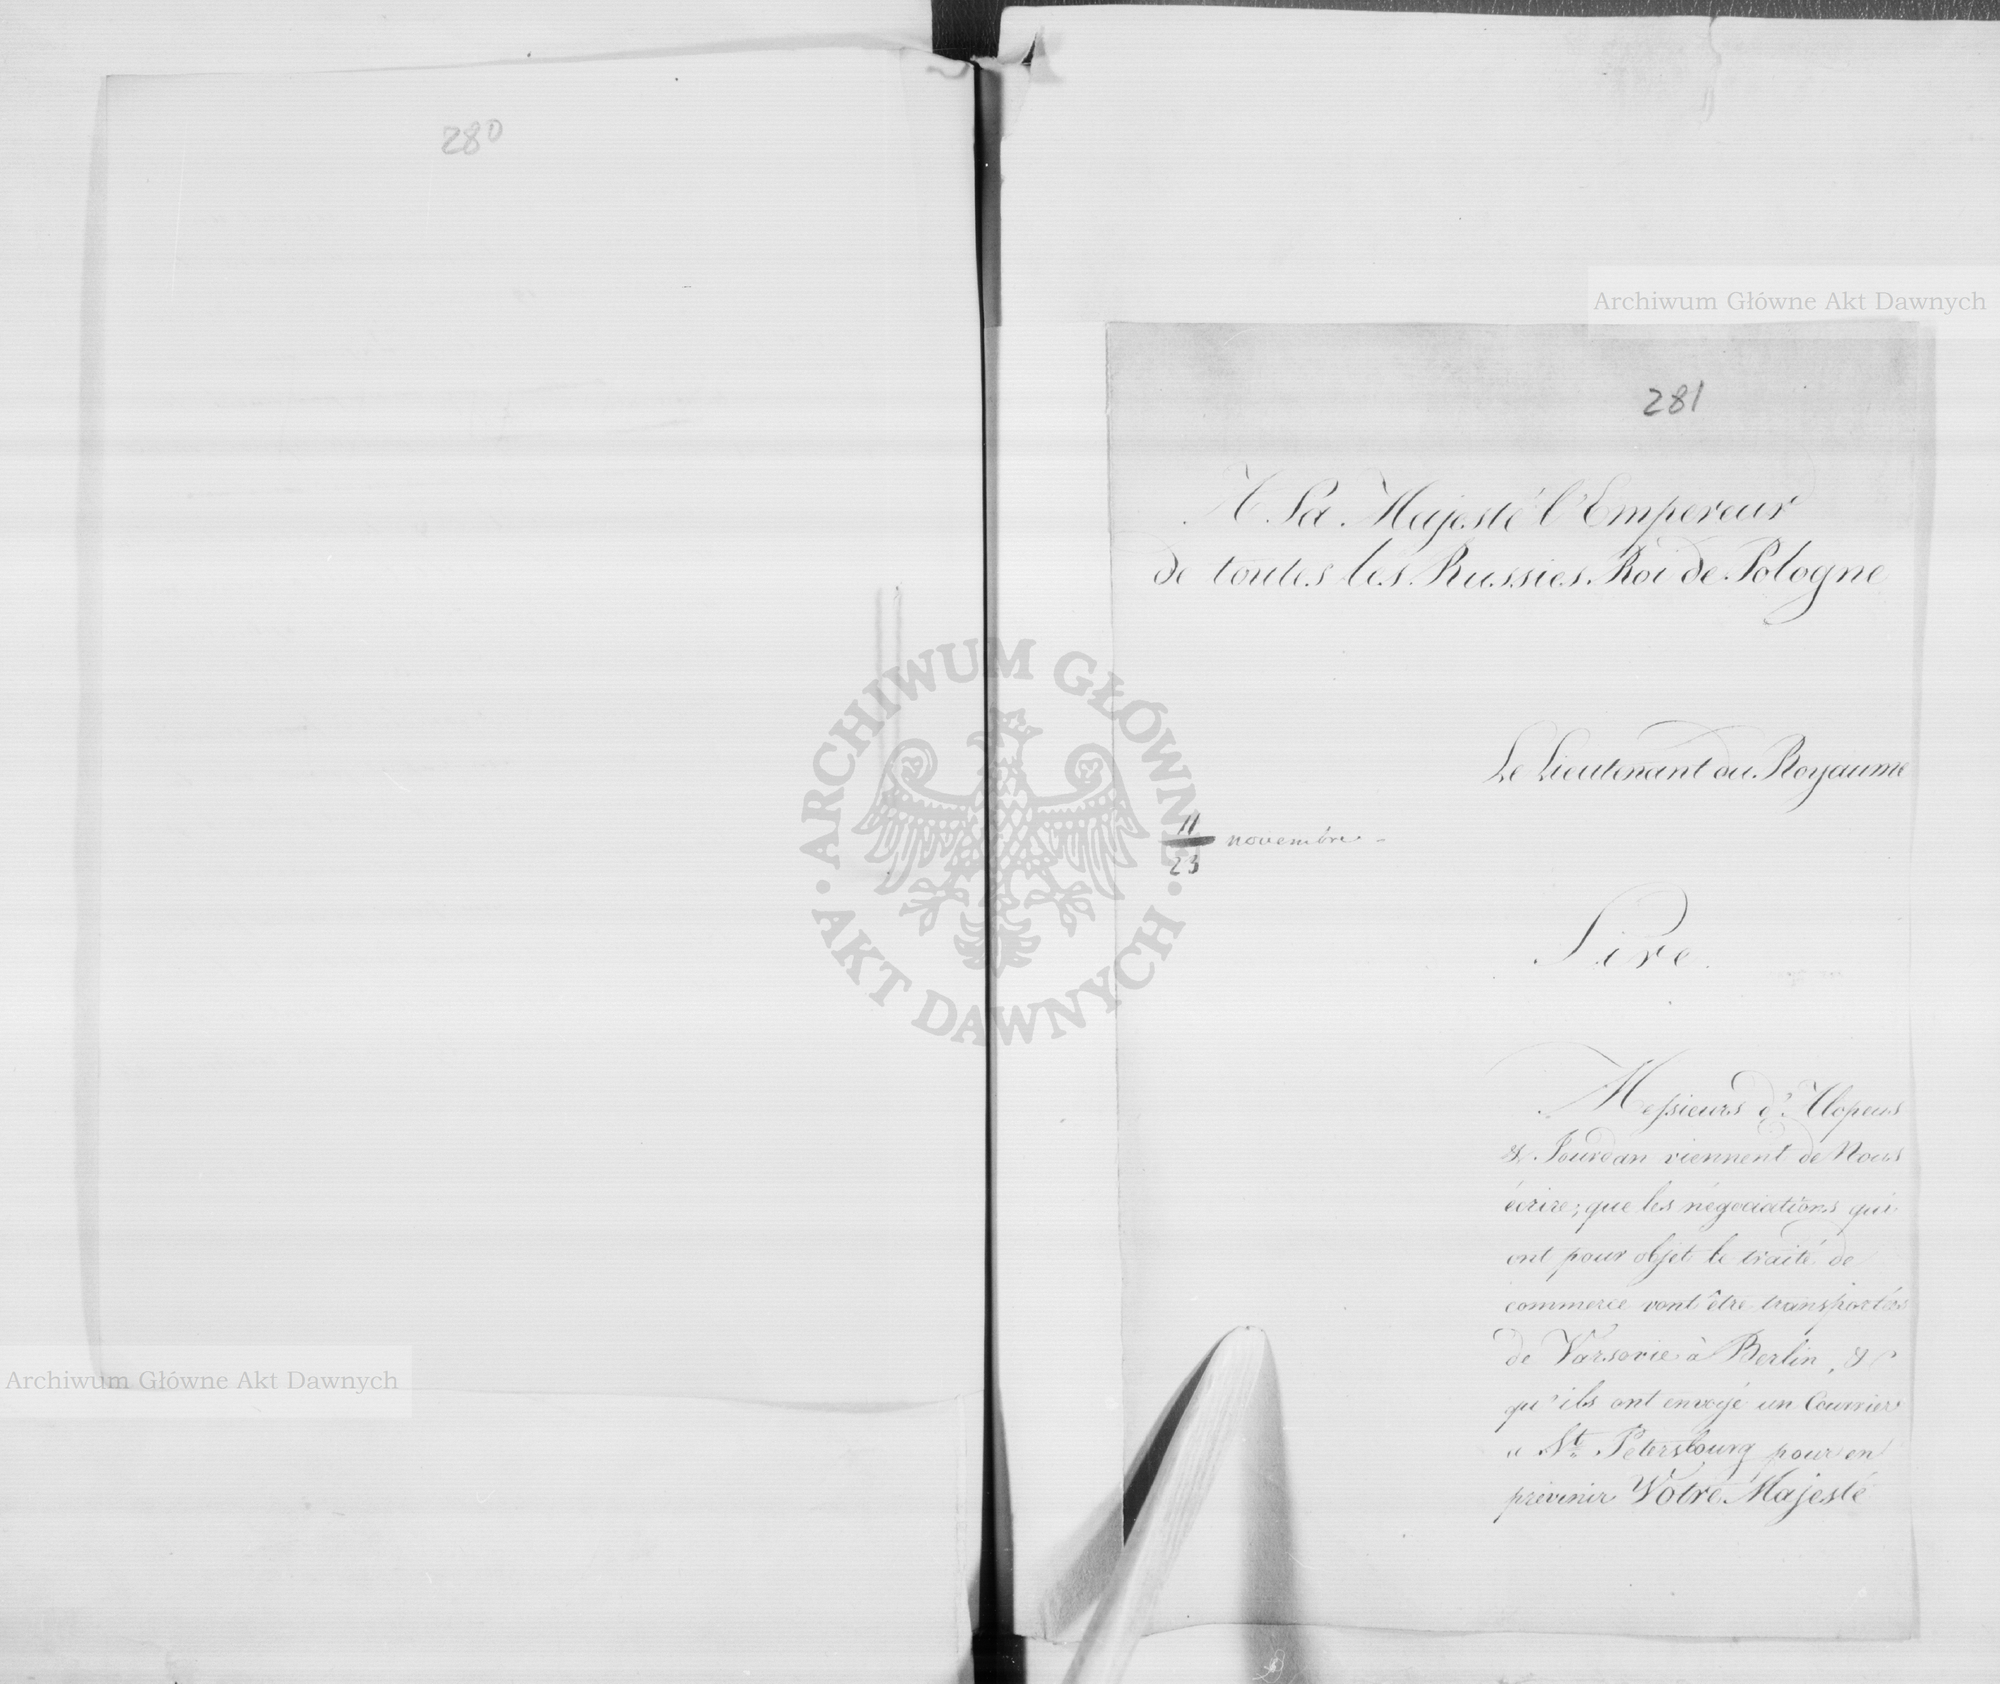 280
Archiwum Główne Akt Dawnych
281
A Sa Majesté l'Empereur
de toutes les Russies Roi de Pologne
Le Lieutenant du Royaume
11
23
novembre -
Sire
Messieurs d'Alopeus
& Jourdan viennent de Nous
écrire; que les négociations qui
ont pour objet le traité de
commerce vont être transportés
de Varsovie à Berlin, &
qu'ils ont envoyé un Courrier
a St. Petersbourg pour en
prévenir Votre Majesté
ARCHIWUM GŁÓWNE
AKT DAWNYCH
Archiwum Główne Akt Dawnych